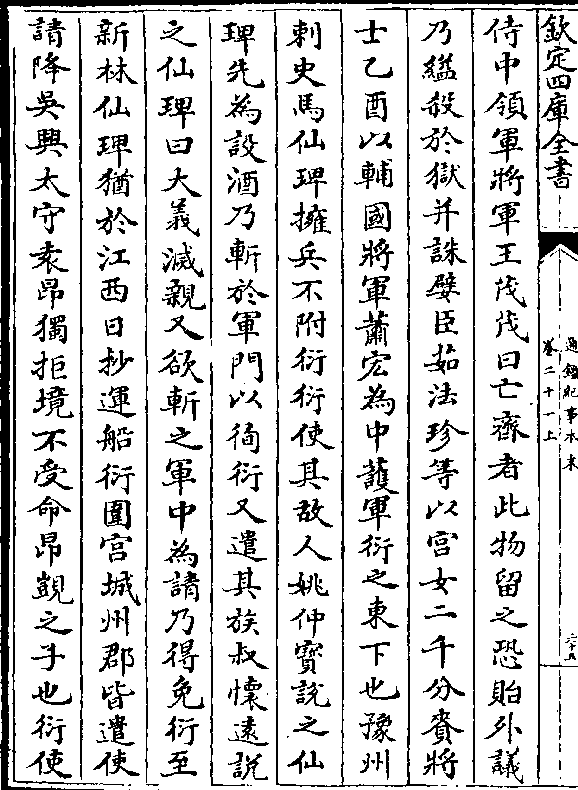 欽定四庫全書
通鑑紀事本末
卷二十一上
二十五
侍中領軍將軍王茂茂曰亡齊者此物留之恐貽外議
乃縊殺於獄并誅嬖臣茹法珍等以宫女二千分賚將
士乙酉以輔國將軍蕭宏為中護軍衍之東下也豫州
刺史馬仙琕擁兵不附衍衍使其故人姚仲寶說之仙
琕先為設酒乃斬於軍門以徇衍又遣其族叔懷遠說
之仙琕曰大義滅親又欲斬之軍中為請乃得免衍至
新林仙琕猶於江西日抄運船衍圍宫城州郡皆遣使
請降吳興太守袁昂獨拒境不受命昂覬之子也衍使